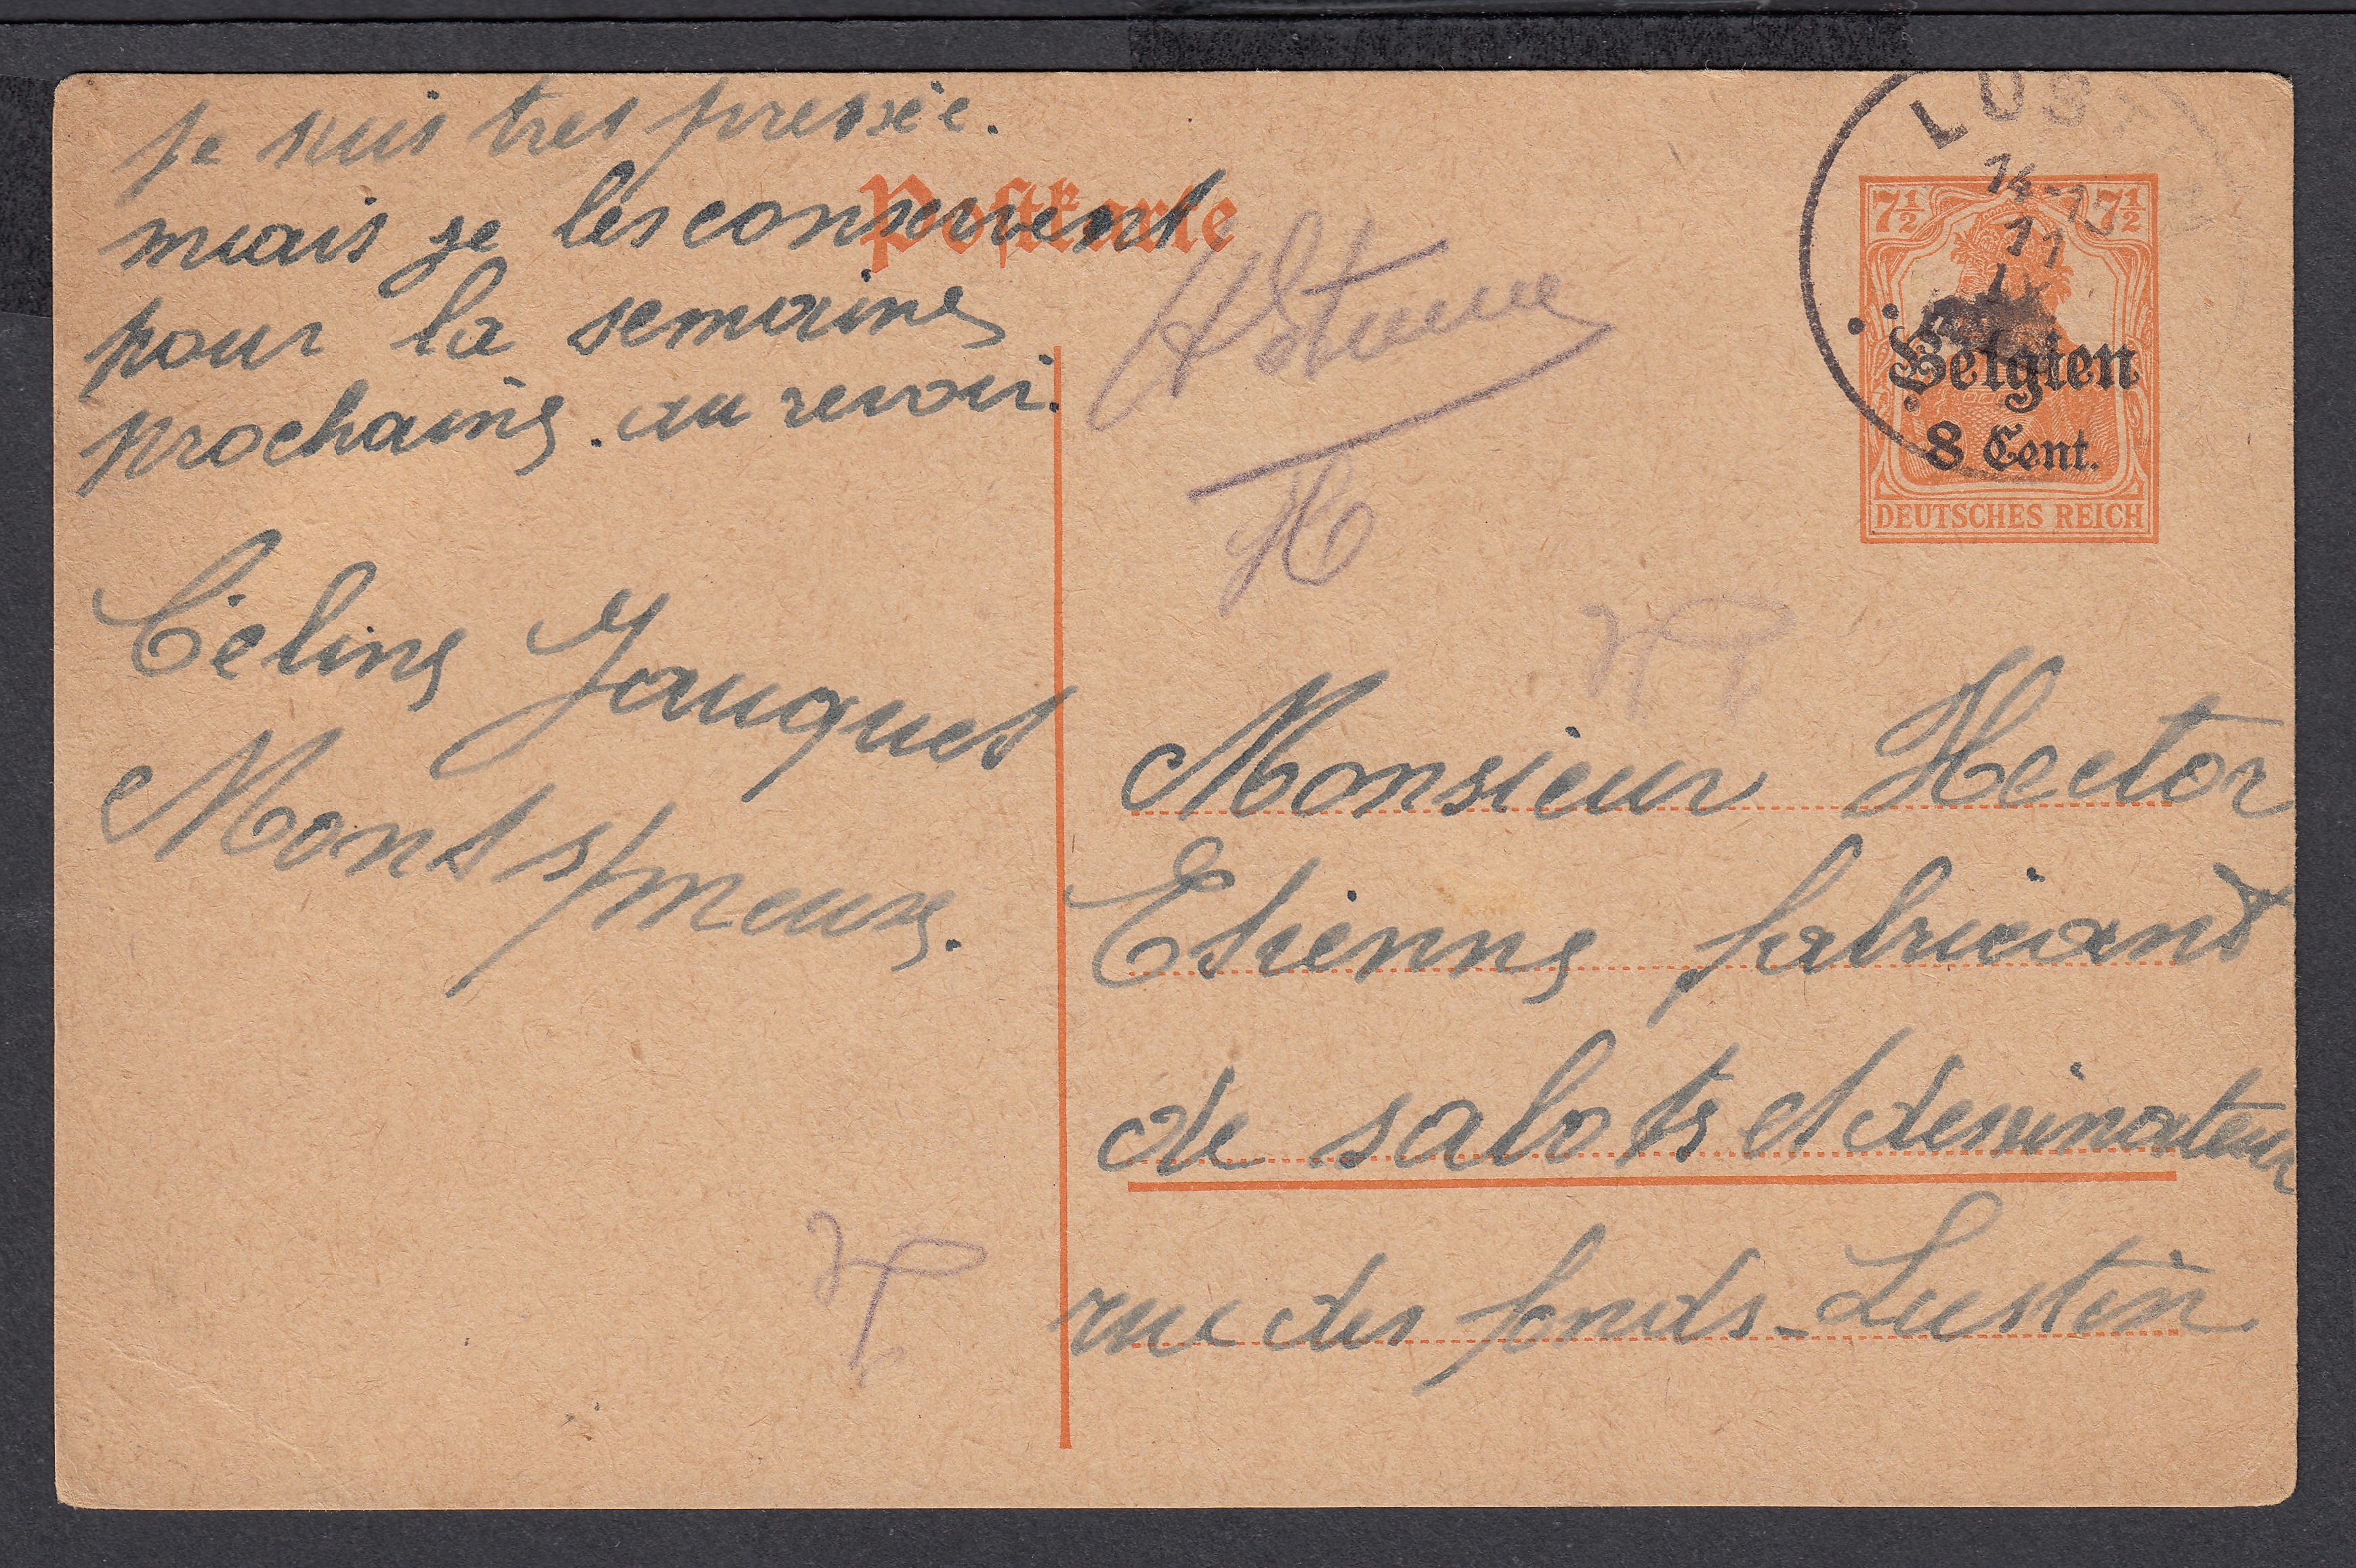 je suis tres pressée.
mais je les conservent
pour la semaine
prochaine. au revoir.
Céline Jauquet
Mont s/meuse.
Postkarte
H Etienne
LUST
14-15
11
7½ 7½
Belgien
8 Cent.
DEUTSCHES REICH
Monsieur Hector
Etienne fabricant
de sabots et dessinateur
rue des fonds-Lustin